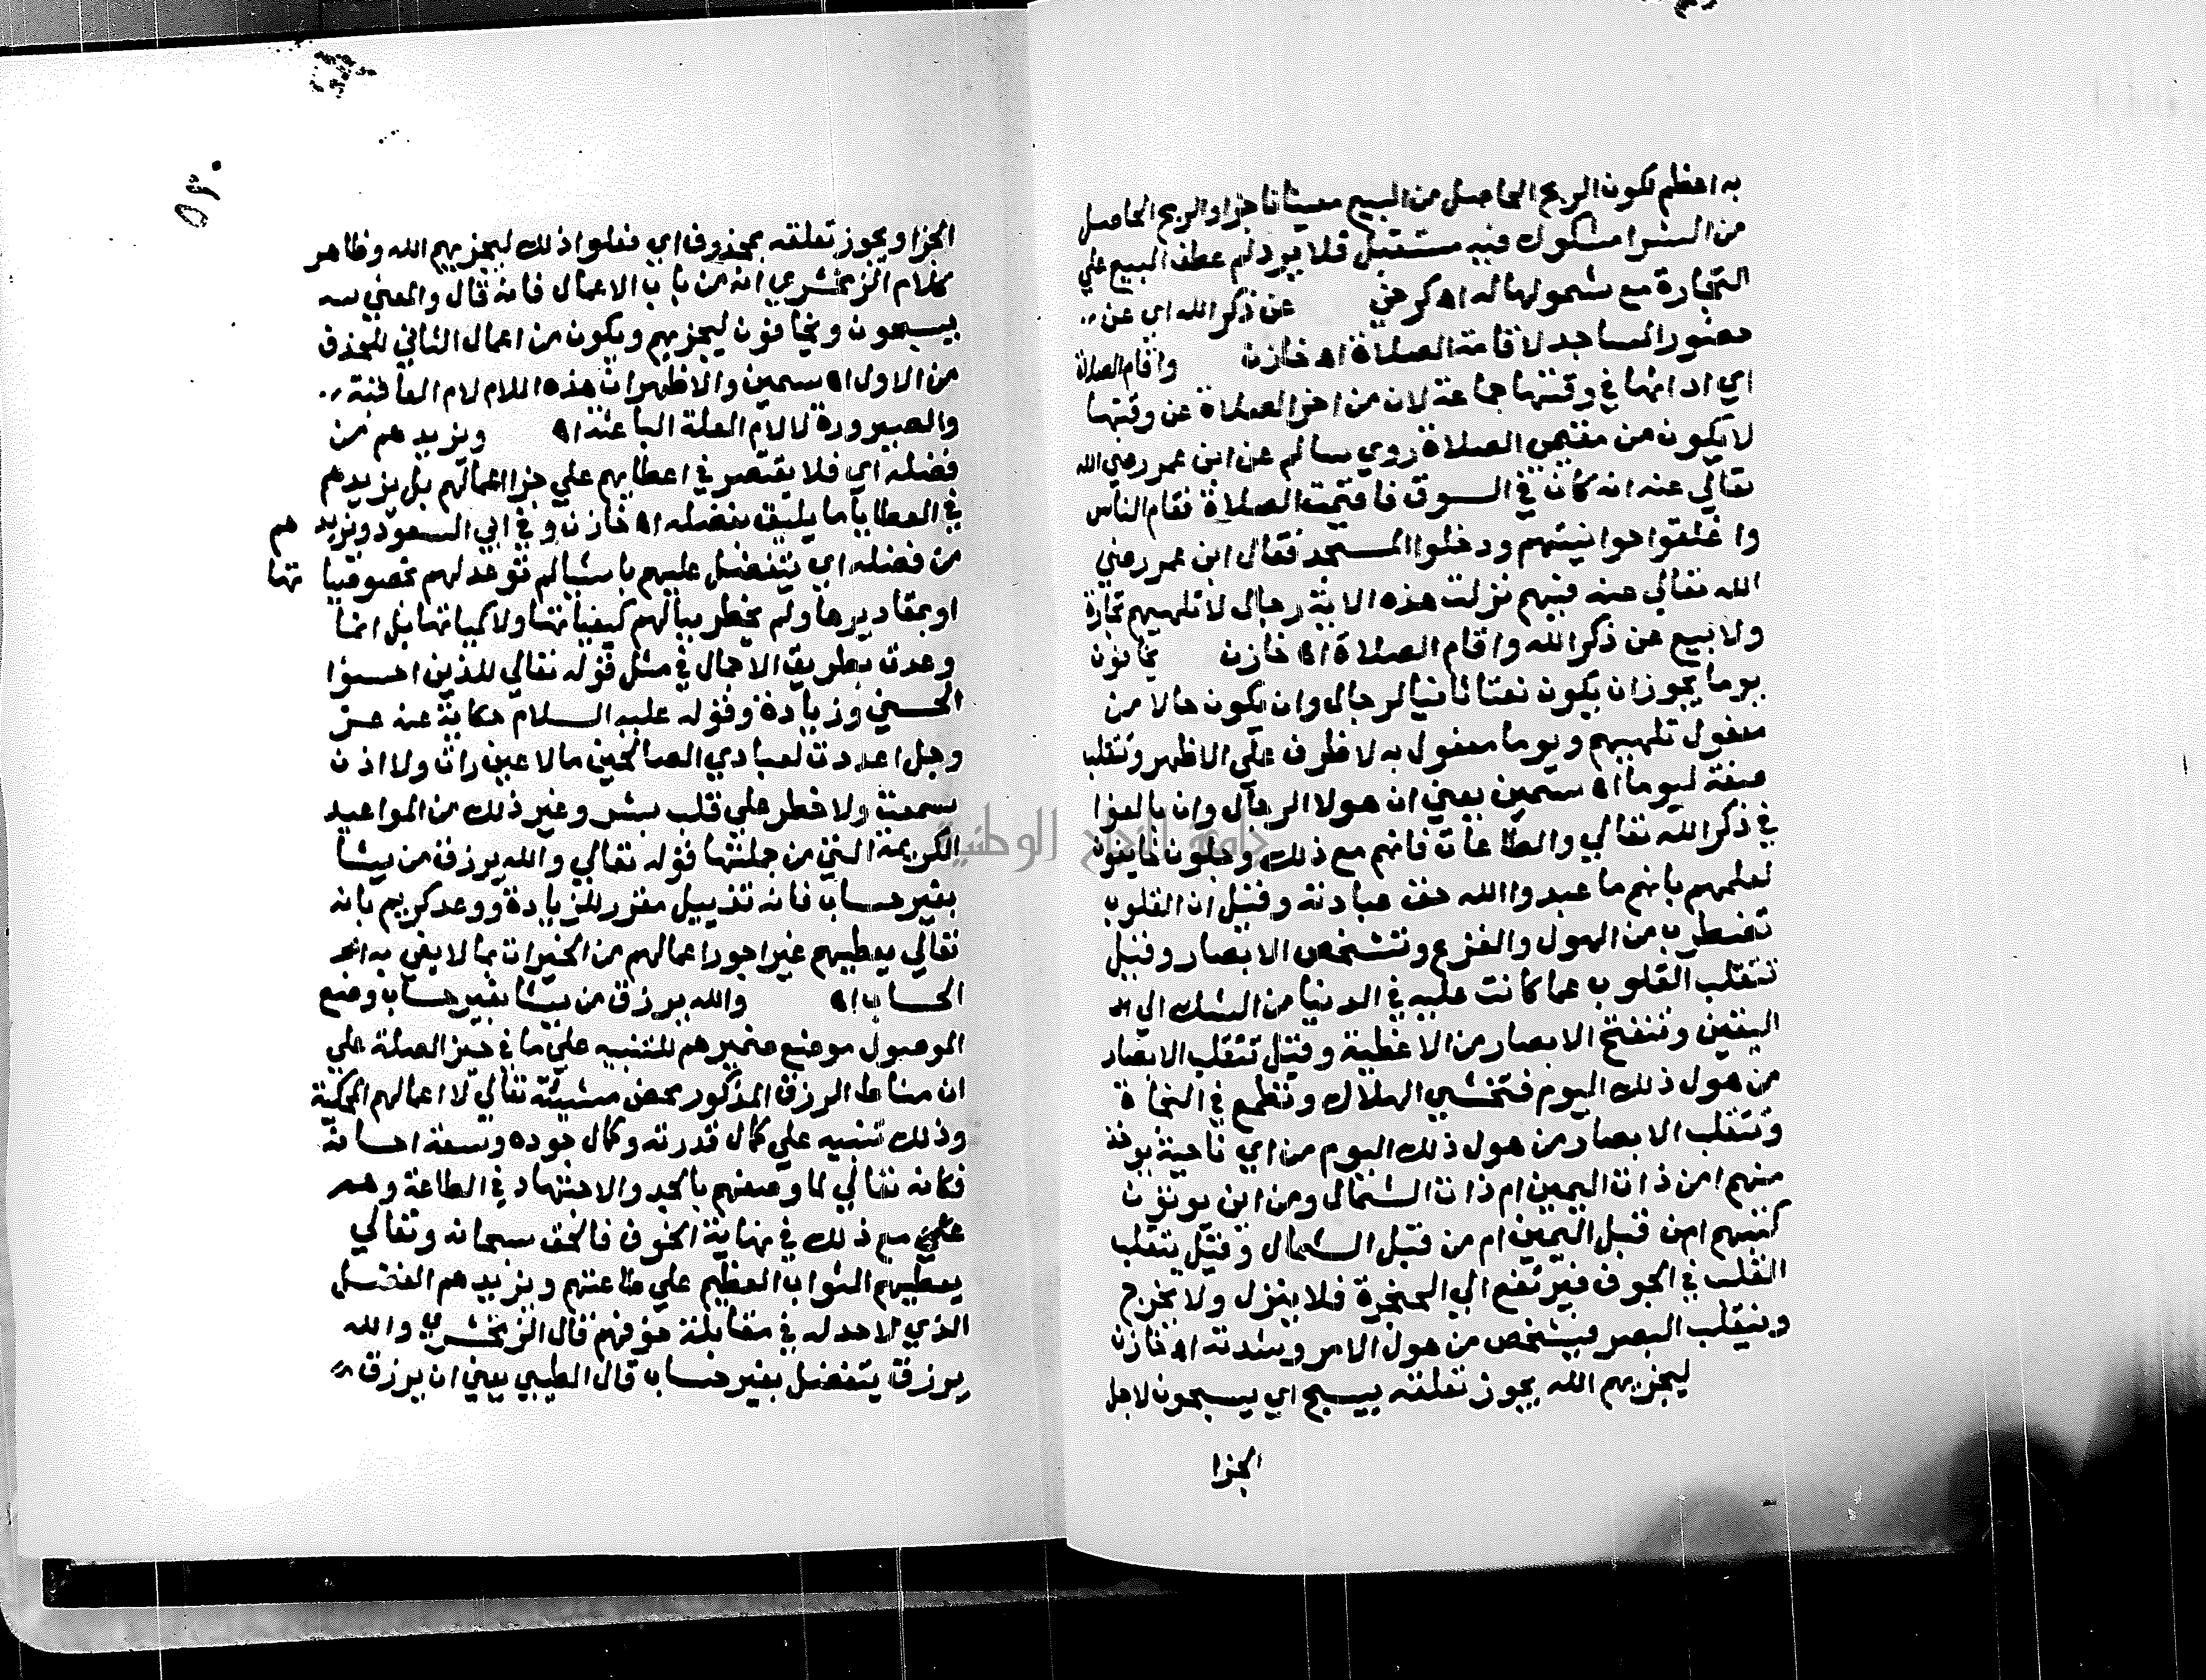 به اعظم لكون الربح الحاصل من البيع معينا ناجزا والربح الحاصل
من الشرا مشكوك فيه مستقبل فلا يرد لم عطف البيع علي
التجارة مع شمولها له اه كرخي عن ذكر الله اي عن
حضور المساجد لاقامة الصلاة اه خازن واقام الصلاة
اي ادائها في وقتها جماعة لان من اخر الصلاة عن وقتها
لا يكون من مقيمي الصلاة روي سالم عن ابن عمر رضي الله
تعالي عنه انه كان في السوق فاقيمت الصلاة فقام الناس
واغلقوا حوانيتهم ودخلوا المسجد فقال ابن عمر رضي
الله تعالي عنه فيهم نزلت هذه الاية رجال لا تلهيهم تجارة
ولا بيع عن ذكر الله واقام الصلاة اه خازن يخافون
يوما يجوز ان يكون نعتا ثانيا لرجال وان يكون حالا من
مفعول تلهيهم ويوما مفعول به لا ظرف علي الاظهر وتتقلب
صفة ليوما اه سمين يعني ان هولا الرجال وان بالغوا
في ذكر الله تعالي والطاعات فانهم مع ذلك وجلون خايفون
لعلمهم بانهم ما عبدوا الله حق عبادته وقيل ان القلوب
تضطرب من الهول والفزع وتشخص الابصار وقيل
تتقلب القلوب عما كانت عليه في الدنيا من الشك الي
اليقين وتنفتح الابصار من الاغطية وقيل تتقلب الابصار
من هول ذلك اليوم فتخشي الهلاك وتطمع في النجاة
وتتقلب الابصار من هول ذلك اليوم من اي ناحية يوخذ
منهم امن ذات اليمين ام ذات الشمال ومن اين يوتون
كتبهم امن قبل اليمين ام من قبل الشمال وقيل يتقلب
القلب في الجوف فيرتفع الي الحنجرة فلا ينزل ولا يخرج
ويتقلب البصر فيشخص من هول الامر وشدته اه خازن
ليجزيهم الله يجوز تعلقه بيسبح اي يسبحون لاجل
الجزا
٥٣٠
الجزا ويجوز تعلقه بمحذوف اي فعلوا ذلك ليجزيهم الله وظاهر
كلام الزمخشري انه من باب الاعمال فانه قال والمعني
يسبحون ويخافون ليجزيهم ويكون من اعمال الثاني للحذف
من الاول اه سمين والاظهر ان هذه اللام لام العاقبة
والصيرورة لا لام العلة الباعثة اه ويزيدهم من
فضله اي فلا يقتصر في اعطايهم علي جزا اعمالهم بل يزيدهم
في العطايا ما يليق بفضله اه خازن وفي ابي السعود ويزيدهم
من فضله اي يتفضل عليهم باشيا لم توعد لهم بخصوصياتها
او بمقاديرها ولم يخطر ببالهم كيفياتها ولا كمياتها بل انما
وعدت بطريق الاجمال في مثل قوله تعالي للذين احسنوا
الحسني وزيادة وقوله عليه السلام حكاية عنه عز
وجل اعددت لعبادي الصالحين ما لا عين رات ولا اذن
سمعت ولا خطر علي قلب بشر وغير ذلك من المواعيد
الكريمة التي من جملتها قوله تعالي والله يرزق من يشا
بغير حساب فانه تذييل مقرر للزيادة ووعد كريم بانه
تعالي يعطيهم غير اجور اعمالهم من الخيرات بما لا يفي به
الحساب اه والله يرزق من يشا بغير حساب وضع
الموصول موضع ضميرهم للتنبيه علي ما في حيز الصلة علي
ان مناط الرزق المذكور محض مشيئة تعالي لا اعمالهم المحكية
وذلك تنبيه علي كمال قدرته وكمال جوده وسعة احسانه
فكانه تعالي لما وصفهم بالجد والاجتهاد في الطاعة وهم
علي مع ذلك في نهاية الخوف فالحق سبحانه وتعالي
يعطيهم الثواب العظيم علي طاعتهم ويزيدهم الفضل
الذي لا حد له في مقابلة خوفهم قال الزمخشري والله
يرزق يتفضل بغير حساب قال الطيبي يعني ان يرزق
جامعة النجاح الوطنية